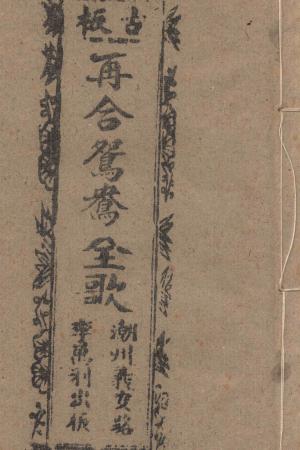 古板
再合鴛鴦全歌
潮州義安路
李萬利出板